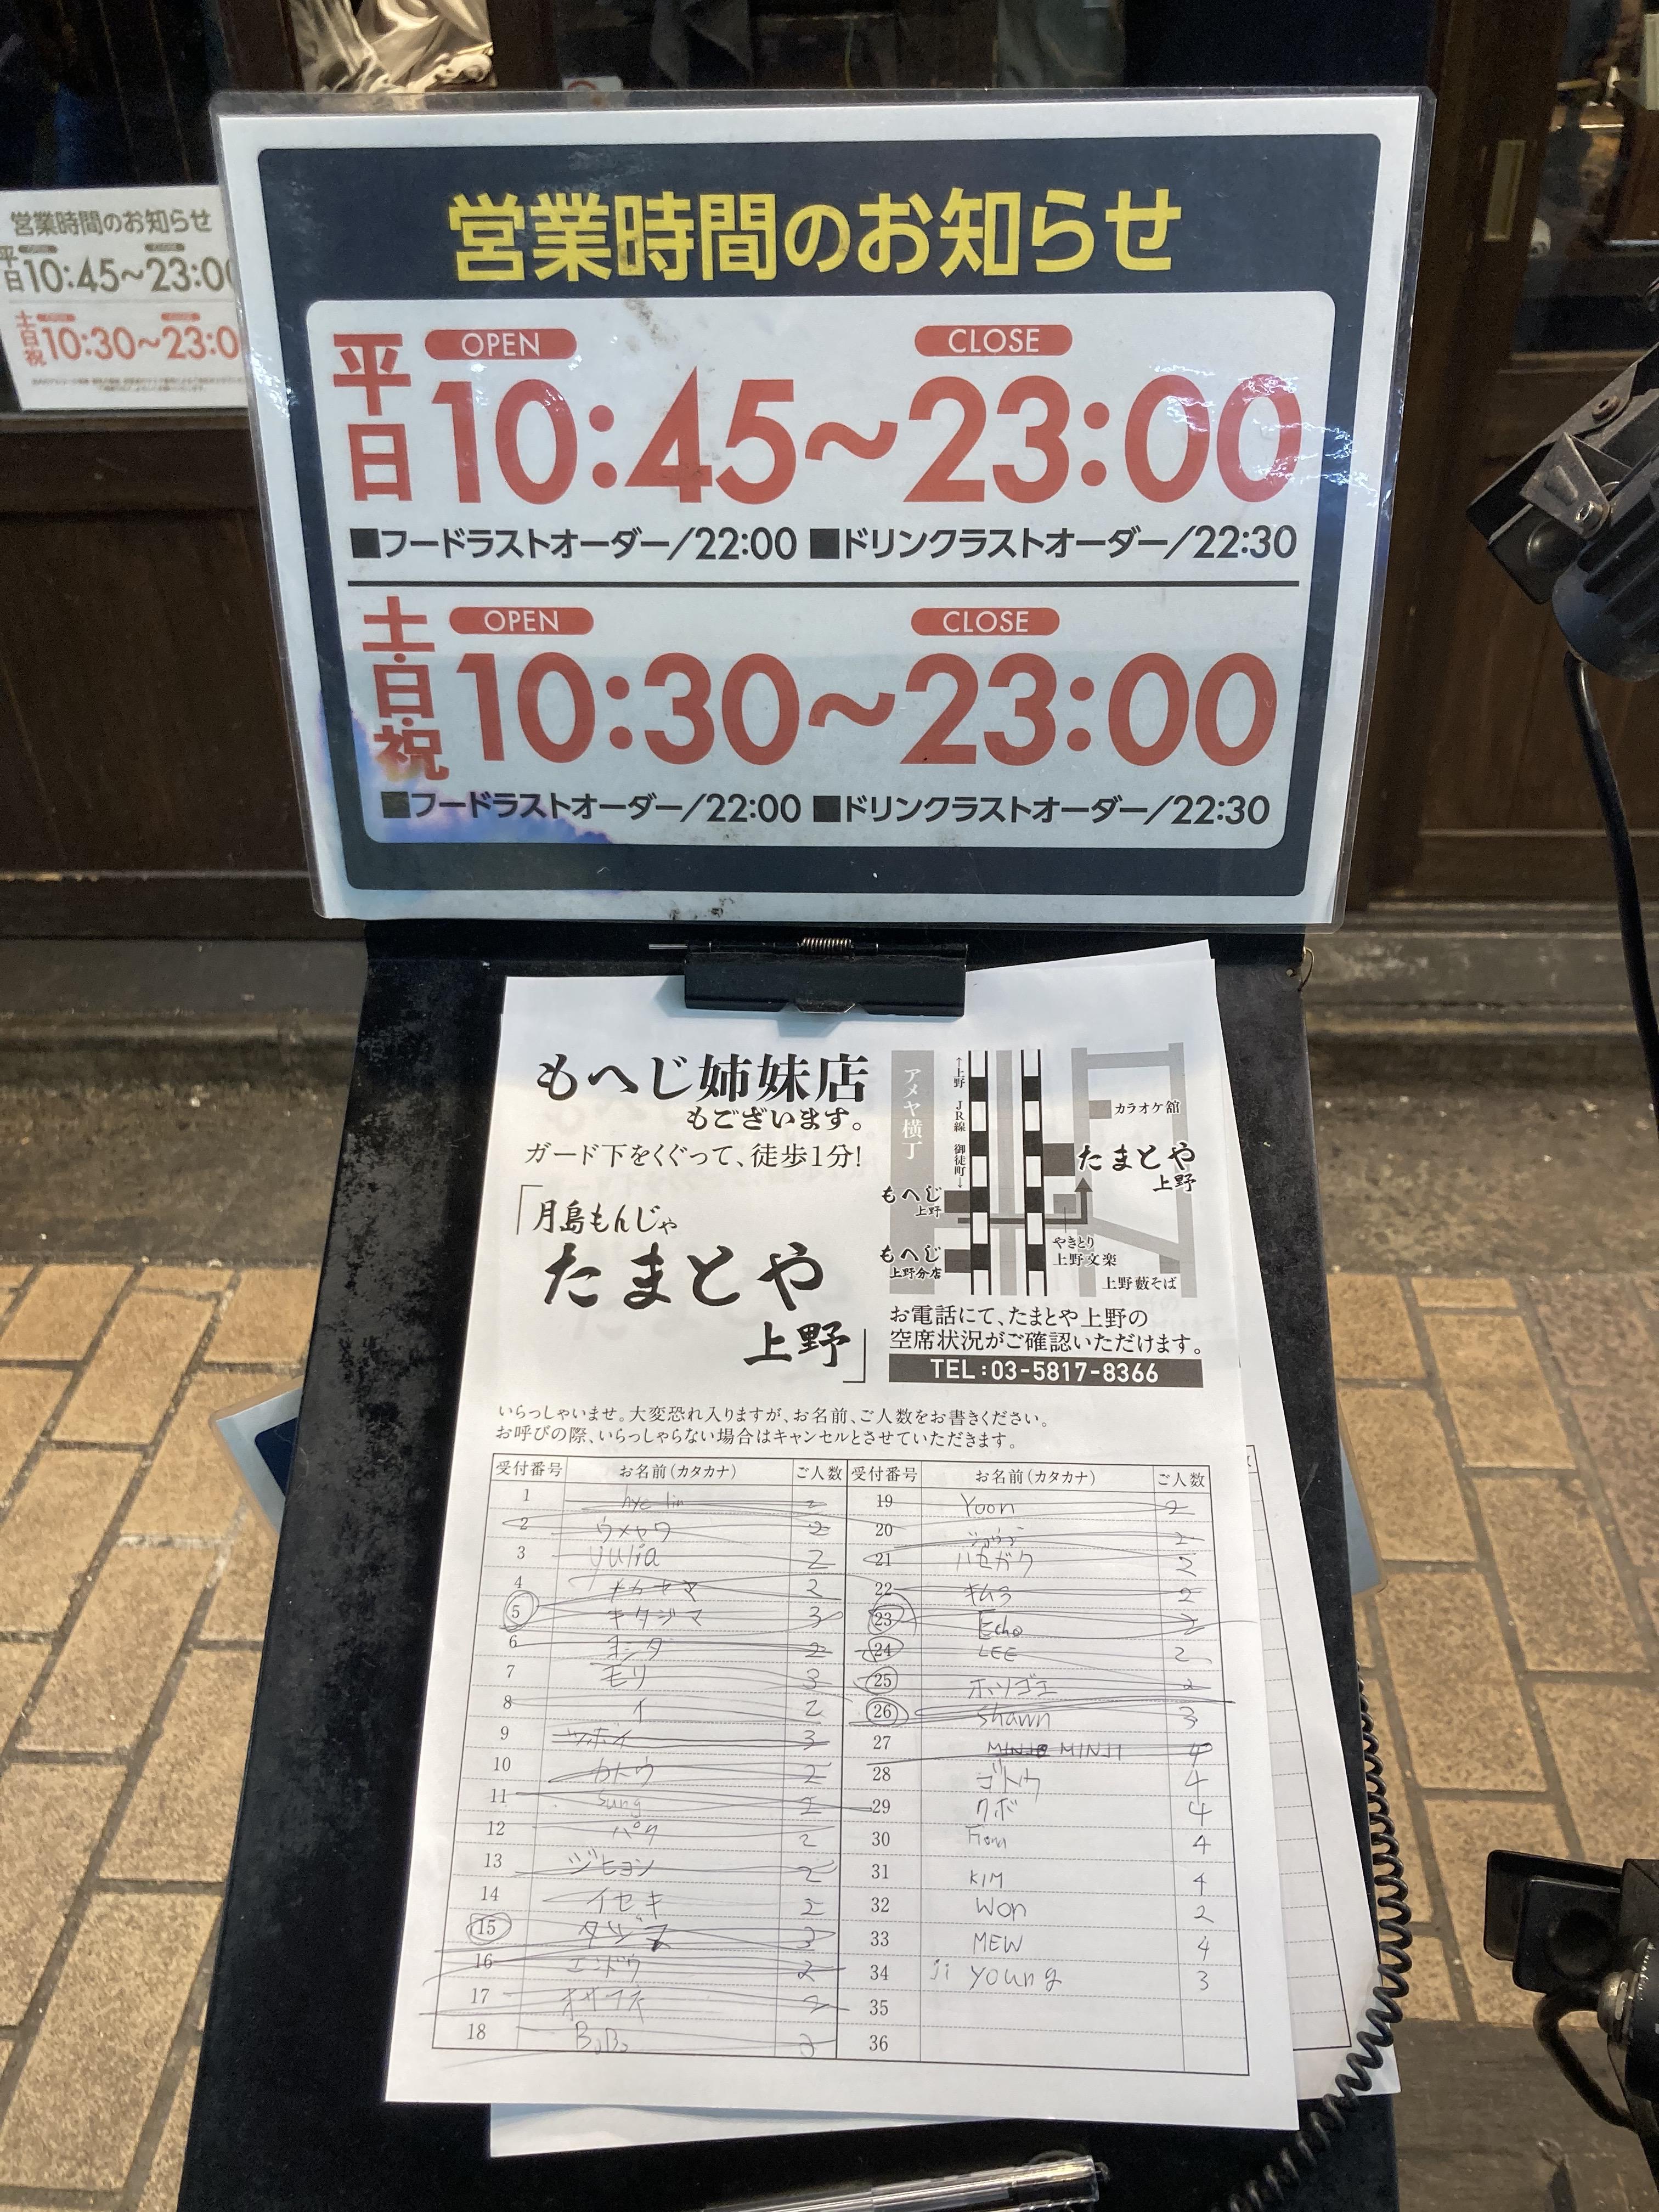 営業時間のお知らせ
平日 OPEN 10:45〜CLOSE 23:00
土日祝 OPEN 10:30〜CLOSE 23:0
営業時間のお知らせ
平日
OPEN CLOSE
10:45〜23:00
■フードラストオーダー/22:00 ■ドリンクラストオーダー/22:30
土・日・祝
OPEN CLOSE
10:30〜23:00
■フードラストオーダー/22:00 ■ドリンクラストオーダー/22:30
もへじ姉妹店
もございます。
ガード下をくぐって、徒歩1分!
「月島もんじゃ
たまとや
上野」
アメヤ横丁
↑上野 JR線 御徒町↓
カラオケ舘
たまとや
上野
もへじ
上野
もへじ
上野分店
やきとり
上野文楽
上野藪そば
お電話にて、たまとや上野の
空席状況がご確認いただけます。
TEL:03-5817-8366
いらっしゃいませ。大変恐れ入りますが、お名前、ご人数をお書きください。
お呼びの際、いらっしゃらない場合はキャンセルとさせていただきます。
受付番号 お名前(カタカナ) ご人数
1 hye lin 2
2 ウメヤワ 2
3 yulia 2
4 ナカヤマ 2
5 キタジマ 3
6 ヨシダ 2
7 モリ 3
8 イ 2
9 ツボイ 3
10 カトウ 2
11 Sung 2
12 パク 2
13 ジヒョン 2
14 イセキ 2
15 タジマ 3
16 エンドウ 2
17 2
18 2
受付番号 お名前(カタカナ) ご人数
19 Yoon 2
20 2
21 ハセガワ 2
22 キムラ 2
23 Echo 2
24 LEE 2
25 ホソゴエ 2
26 Shawn 3
27 MINJI 4
28 ゴトウ 4
29 クボ 4
30 4
31 KIM 4
32 Won 2
33 MEW 4
34 ji young 3
35
36